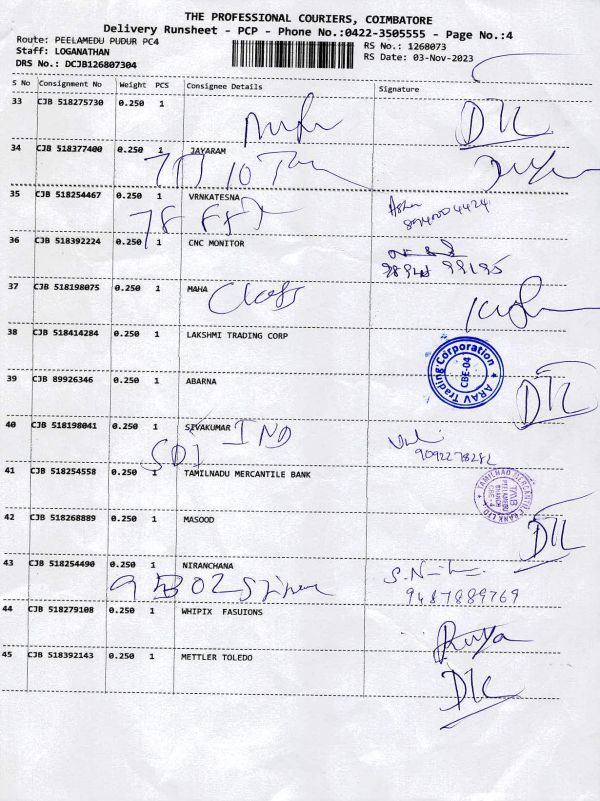 THE PROFESSIONAL COURIERS, COIMBATORE
Delivery Runsheet - PCP - Phone No.:0422-3505555 - Page No.:4
Route: PEELAMEDU PUDUR PC4
RS No.: 1268073
Staff: LOGANATHAN
RS Date: 03-Nov-2023
DRS No.: DCJB126807304
S No Consignment No Weight PCS Consignee Details Signature
33 CJB 518275730 0.250 1
DTC
34 CJB 518377400 0.250 1 JAYARAM
35 CJB 518254467 0.250 1 VRNKATESNA
36 CJB 518392224 0.250 1 CNC MONITOR
37 CJB 518198075 0.250 1 MAHA
Class
38 CJB 518414284 0.250 1 LAKSHMI TRADING CORP
ARAV Trading Corporation
CBE-04
39 CJB 89926346 0.250 1 ABARNA
DTC
40 CJB 518198041 0.250 1 SIVAKUMAR IND
9092278282
41 CJB 518254558 0.250 1 TAMILNADU MERCANTILE BANK
TAMILNAD MERCANTILE BANK LTD
PEELAMEDU
BRANCH
42 CJB 518268889 0.250 1 MASOOD
DTC
43 CJB 518254490 0.250 1 NIRANCHANA
9487889769
44 CJB 518279108 0.250 1 WHIPIX FASUIONS
45 CJB 518392143 0.250 1 METTLER TOLEDO
DTC